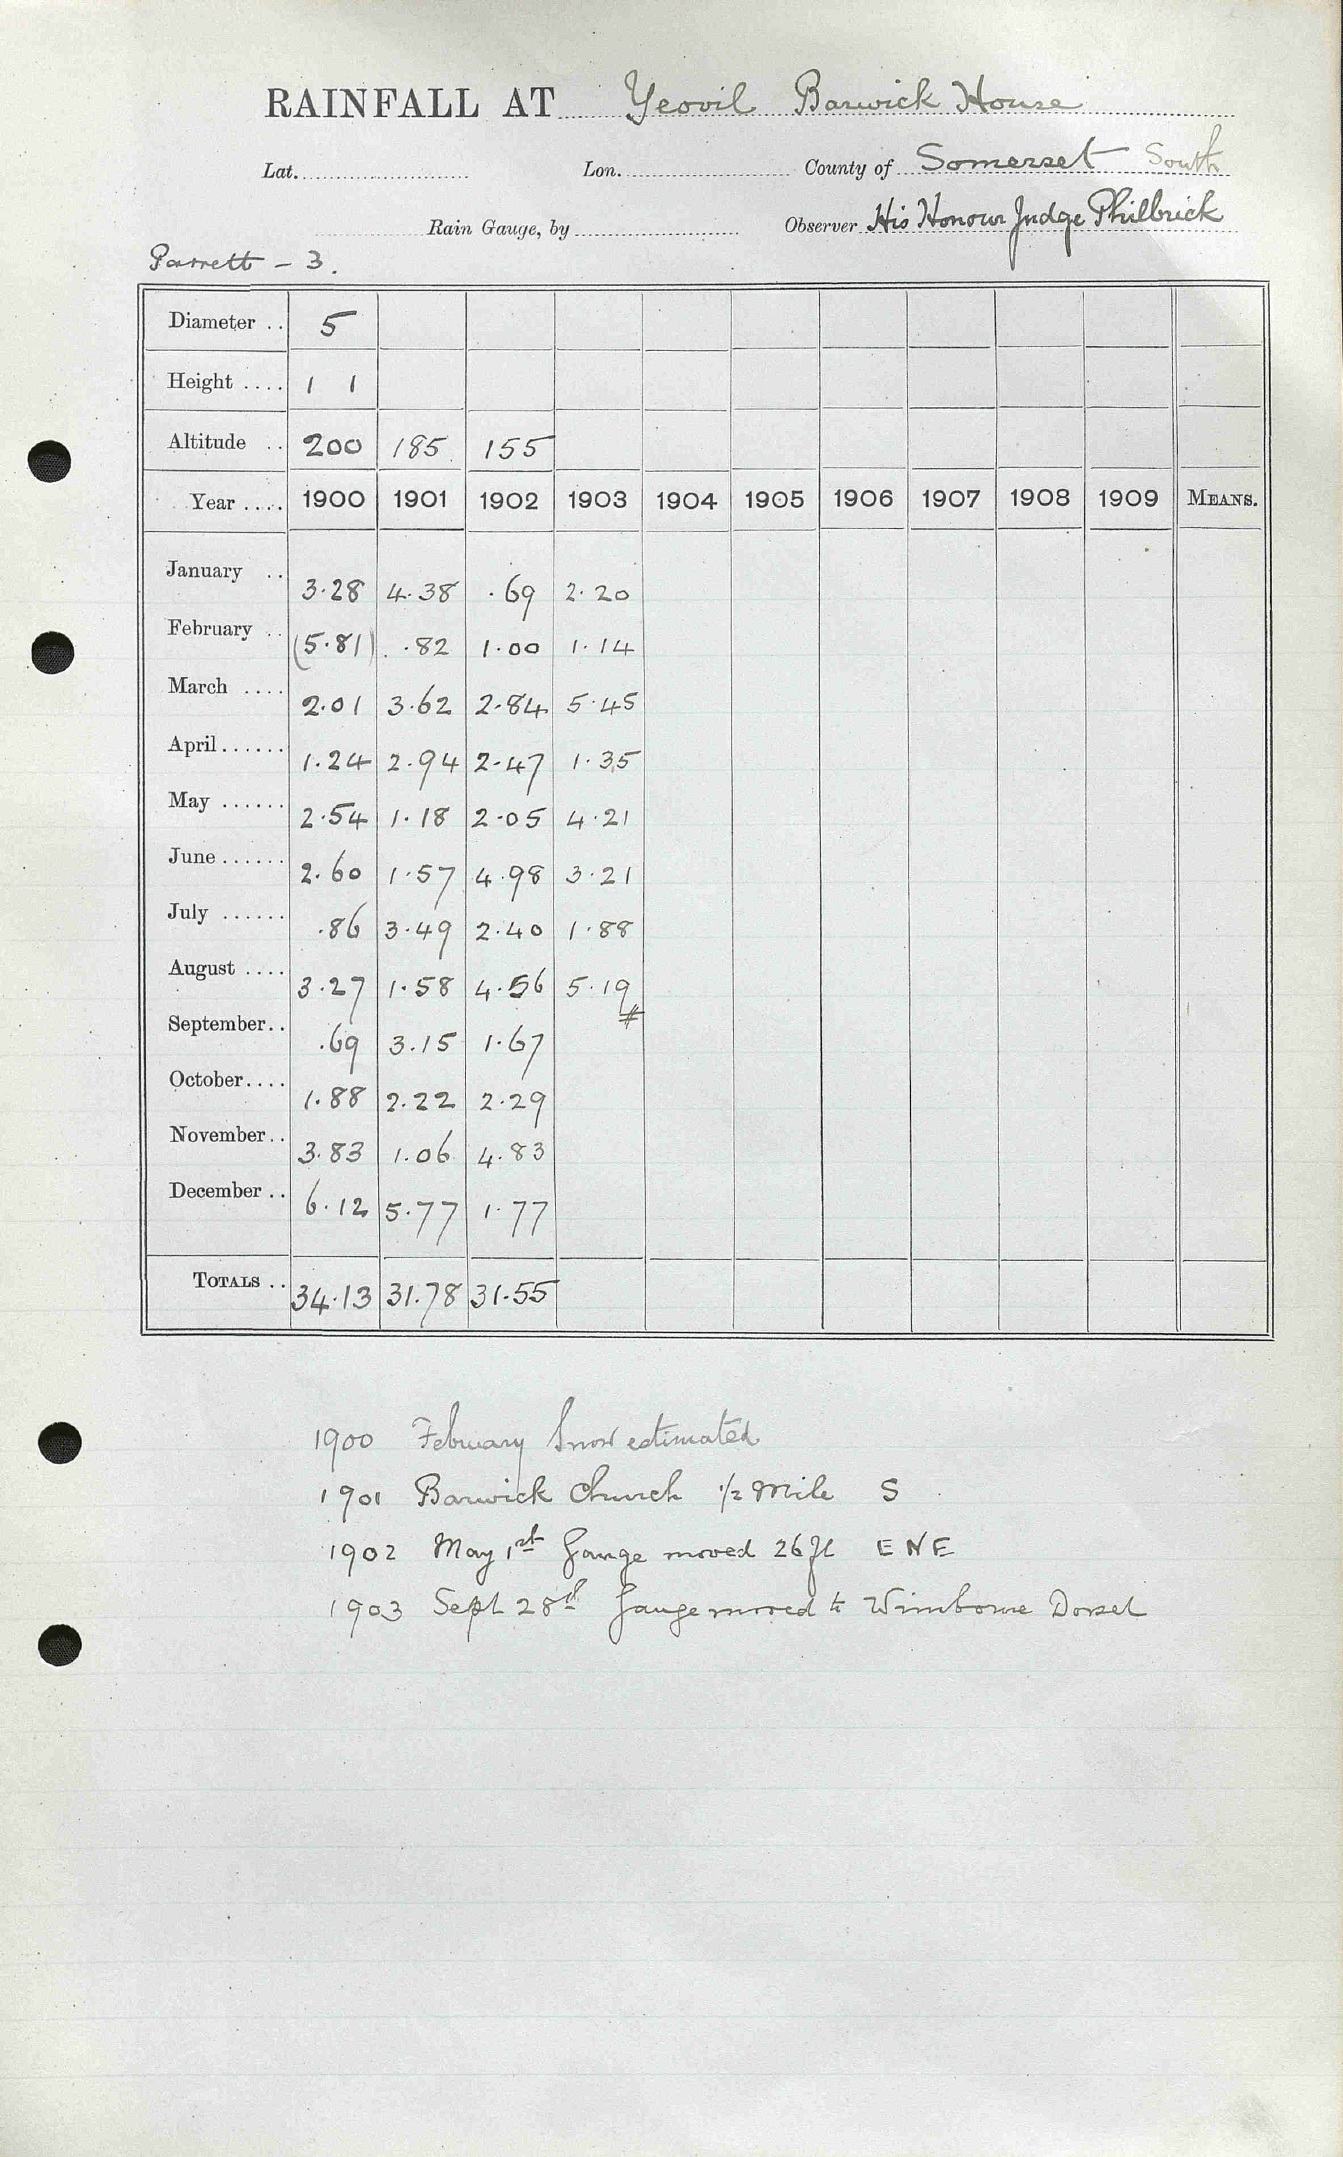 RAINFALL AT Yeovil Barwick House
Lat. Lon. County of Somerset South
Rain Gauge, by Observer His Honour Judge Philbrick
Parrett - 3.
Diameter .. 5
Height .... 1 1
Altitude .. 200 185 155
Year .... 1900 1901 1902 1903 1904 1905 1906 1907 1908 1909 MEANS.
January .. 3.28 4.38 .69 2.20
February .. (5.81) .82 1.00 1.14
March .... 2.01 3.62 2.84 5.45
April...... 1.24 2.94 2.47 1.35
May ...... 2.54 1.18 2.05 4.21
June...... 2.60 1.57 4.98 3.21
July ...... .86 3.49 2.40 1.88
August .... 3.27 1.58 4.56 5.19
September.. .69 3.15 1.67
October.... 1.88 2.22 2.29
November.. 3.83 1.06 4.83
December .. 6.12 5.77 1.77
TOTALS .. 34.13 31.78 31.55
1900 February Snow estimated
1901 Barwick Church 1/2 Mile S
1902 May 1st Gauge moved 26 ft ENE
1903 Sept 28th Gauge moved to Wimborne Dorset